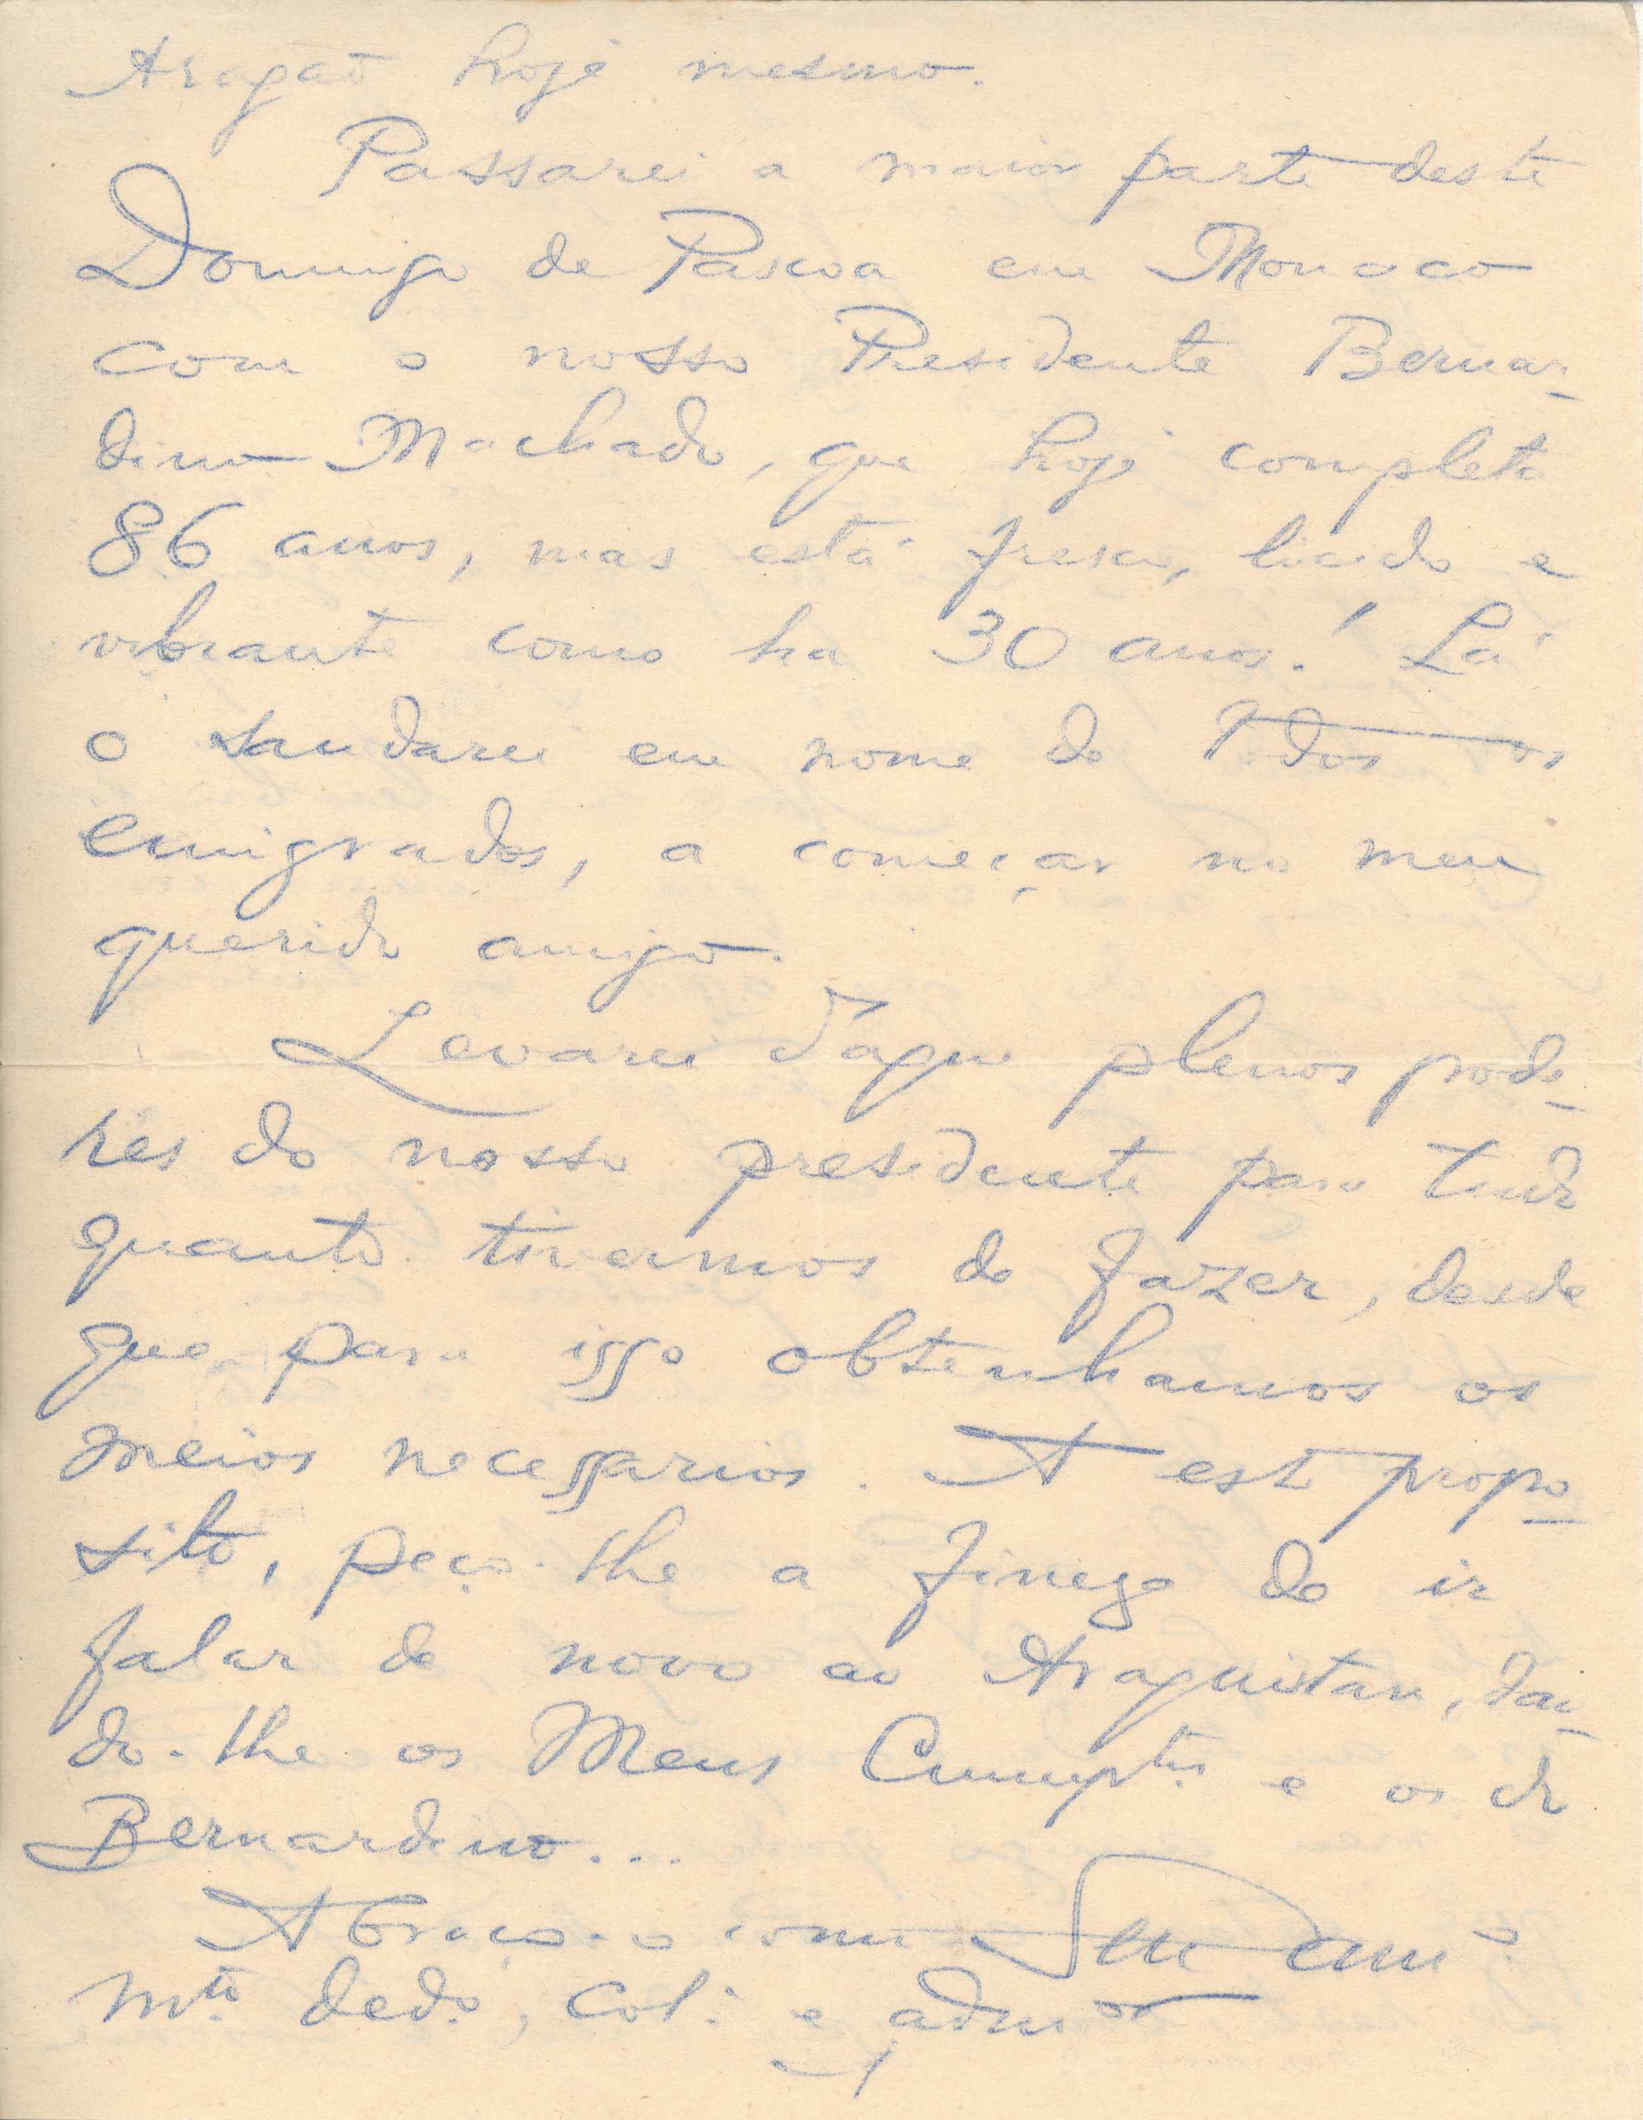 Aragaõ hoje mesmo.
Passarei a maior parte deste
Domingo de Pascoa em Monaco
com o nosso Presidente Bernar-
dino Machado, que hoje completa
86 anos, mas está fresco, lucido e
vibrante como ha 30 anos! Lá
o saudarei em nome de todos os
emigrados, a começar no meu
querido amigo.
Levarei d'aqui plenos pode-
res do nosso presidente para tudo
quanto tivermos de fazer, desde
que para isso obtenhamos os
meios necessarios. A este propo-
sito, peço-lhe a fineza de ir
falar de novo ao Araquistain, dan-
do-lhe os meus Cumptos e os do
Bernardino...
Abraço-o como Seu am.o
mto dedo, col. e admor